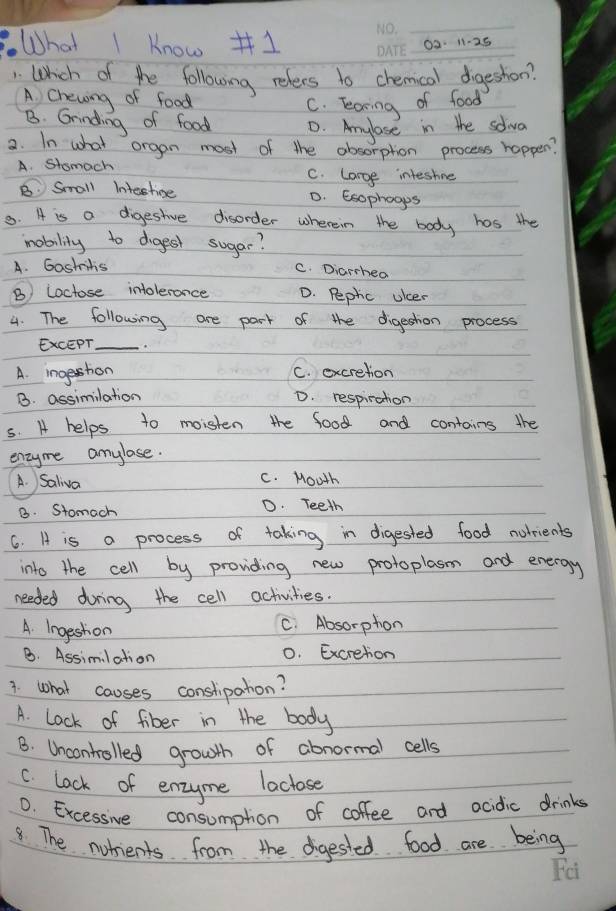 What I Know #1
NO.
DATE 02-11-25
1. Which of the following refers to chemical digestion?
A. Chewing of food
C. Tearing of food
B. Grinding of food
D. Amylase in the saliva
2. In what organ most of the absorption process happen?
A. Stomach
C. Large intestine
B. Small Intestine
D. Esophagus
3. It is a digestive disorder wherein the body has the
inability to digest sugar?
A. Gastritis
C. Diarrhea
B. Lactose intolerance
D. Peptic ulcer
4. The following are part of the digestion process
EXCEPT_____.
A. ingestion
C. excretion
B. assimilation
D. respiration
5. It helps to moisten the food and contains the
enzyme amylase.
A. Saliva
C. Mouth
B. Stomach
D. Teeth
6. It is a process of taking in digested food nutrients
into the cell by providing new protoplasm and energy
needed during the cell activities.
A. Ingestion
C. Absorption
B. Assimilation
D. Excretion
7. What causes constipation?
A. Lack of fiber in the body
B. Uncontrolled growth of abnormal cells
C. Lack of enzyme lactase
D. Excessive consumption of coffee and acidic drinks
8. The nutrients from the digested food are being
Fci